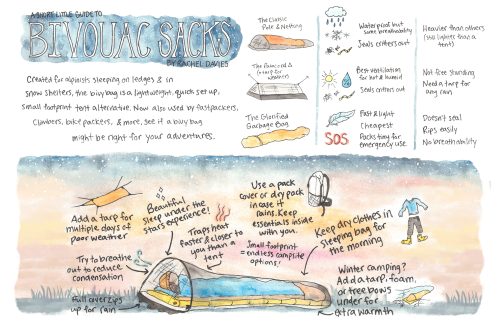 A SHORT LITTLE GUIDE TO
BIVOUAC SACKS
BY RACHEL DAVIES
Created for alpinists sleeping on ledges & in
snow shelters, the bivy bag is a lightweight, quick set up,
small footprint tent alternative. Now also used by fastpackers,
climbers, bike packers, & more, see if a bivy bag
might be right for your adventures.
The Classic
Pole & Netting
Waterproof but
some breathability
Seals critters out
Heavier than others
(still lighter than a
tent)
The Paracord &
(+tarp for
weather)
Best ventilation
for hot & humid
Seals critters out
Not free standing
Need a tarp for
any rain
The Glorified
Garbage Bag
SOS
Fast & light
Cheapest
Packs tiny for
emergency use
Doesn't seal
Rips easily
No breathability
Add a tarp for
multiple days of
poor weather
Beautiful
sleep under the
stars experience!
Traps heat
faster & closer to
you than a
tent
Use a pack
cover or dry pack
in case it
rains. Keep
essentials inside
with you.
Small footprint
= endless campsite
options!
Keep dry clothes in
sleeping bag for
the morning
Try to breathe
out to reduce
condensation
Full cover zips
up for rain
Winter camping?
Add a tarp, foam,
or tree bows
under for
extra warmth